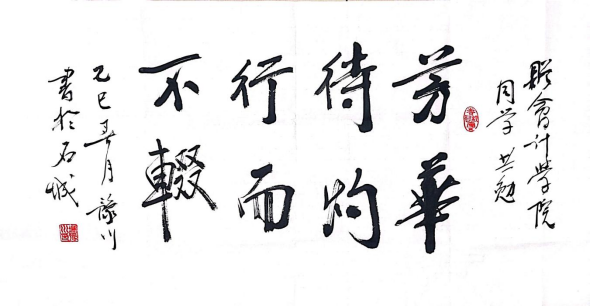 會计學院
同学共勉
芳華
待灼
行而
不輟
乙巳春月豫川
書於石城